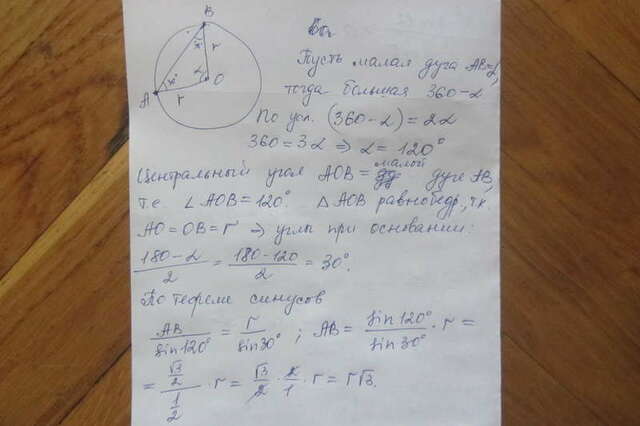 B
x°
r
α
O
x°
A
r
Пусть малая дуга AB=α,
тогда большая 360-α
По усл. (360-α)=2α
360=3α ⇒ α=120°
Центральный угол AOB = малой дуге AB,
т.е. ∠AOB=120°. △ AOB равнобедр., т.к.
AO=OB=r ⇒ углы при основании:
(180-α)/2 = (180-120)/2 = 30°.
По теореме синусов
AB/sin120° = r/sin30° ; AB = sin120°/sin30° · r =
= (√3/2)/(1/2) · r = √3/2 · 2/1 · r = r√3.